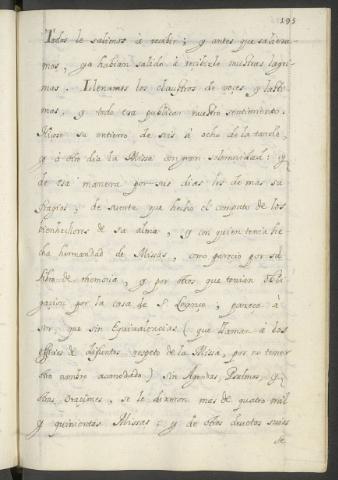 195
Todos le salimos à recibir; y antes que saliera-
mos, ya habian salido à recibirle nuestras lagri-
mas. Llenamos los claustros de voces, y lasti-
mas, y todo era publicar nuestro sentimiento.
Hizose su entierro de seis à ocho de la tarde,
y à otro dia la Missa con gran solemnidad: y
de esa manera por sus dias los de mas su-
fragios; de suerte que hecho el computo de los
bienhechores de su alma, y con quien tenia he-
cha hermandad de Missas, como parecio por su
libro de memoria, y por otros que tenian obli-
gacion por la casa de S. Lorenzo; parece à
ser, que sin Equivalencias (que llaman à los
officios de difuntos respeto de la Missa, por no tener
otro nombre acomodado) sin Agendas, Psalmos, y
otras oraciones, se le dixeron mas de quatro mil
y quinientas Missas: y de otras devotas suias
se